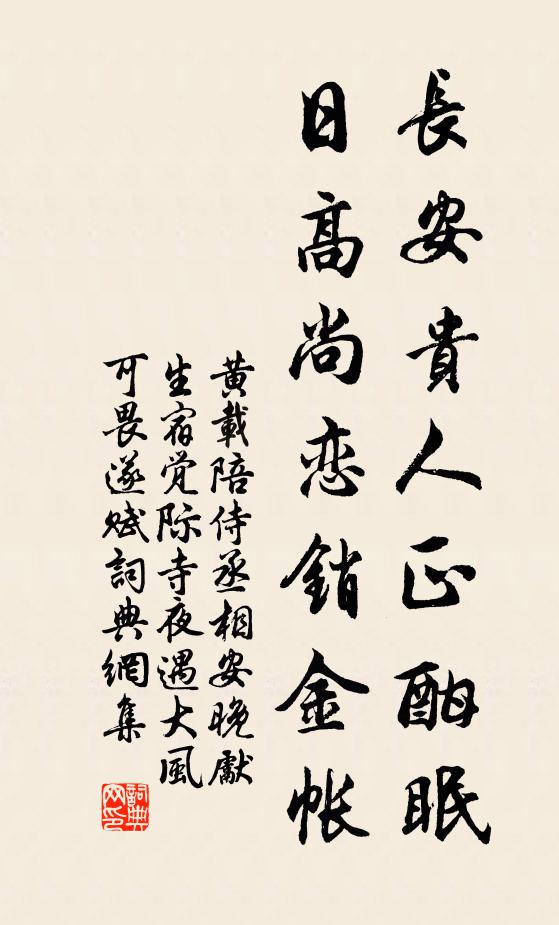 長安貴人正酣眠
日高尚恋銷金帳
黃載陪侍丞相安晚獻
生宿觉际寺夜遇大風
可畏遂赋詞典網集
詞典网印